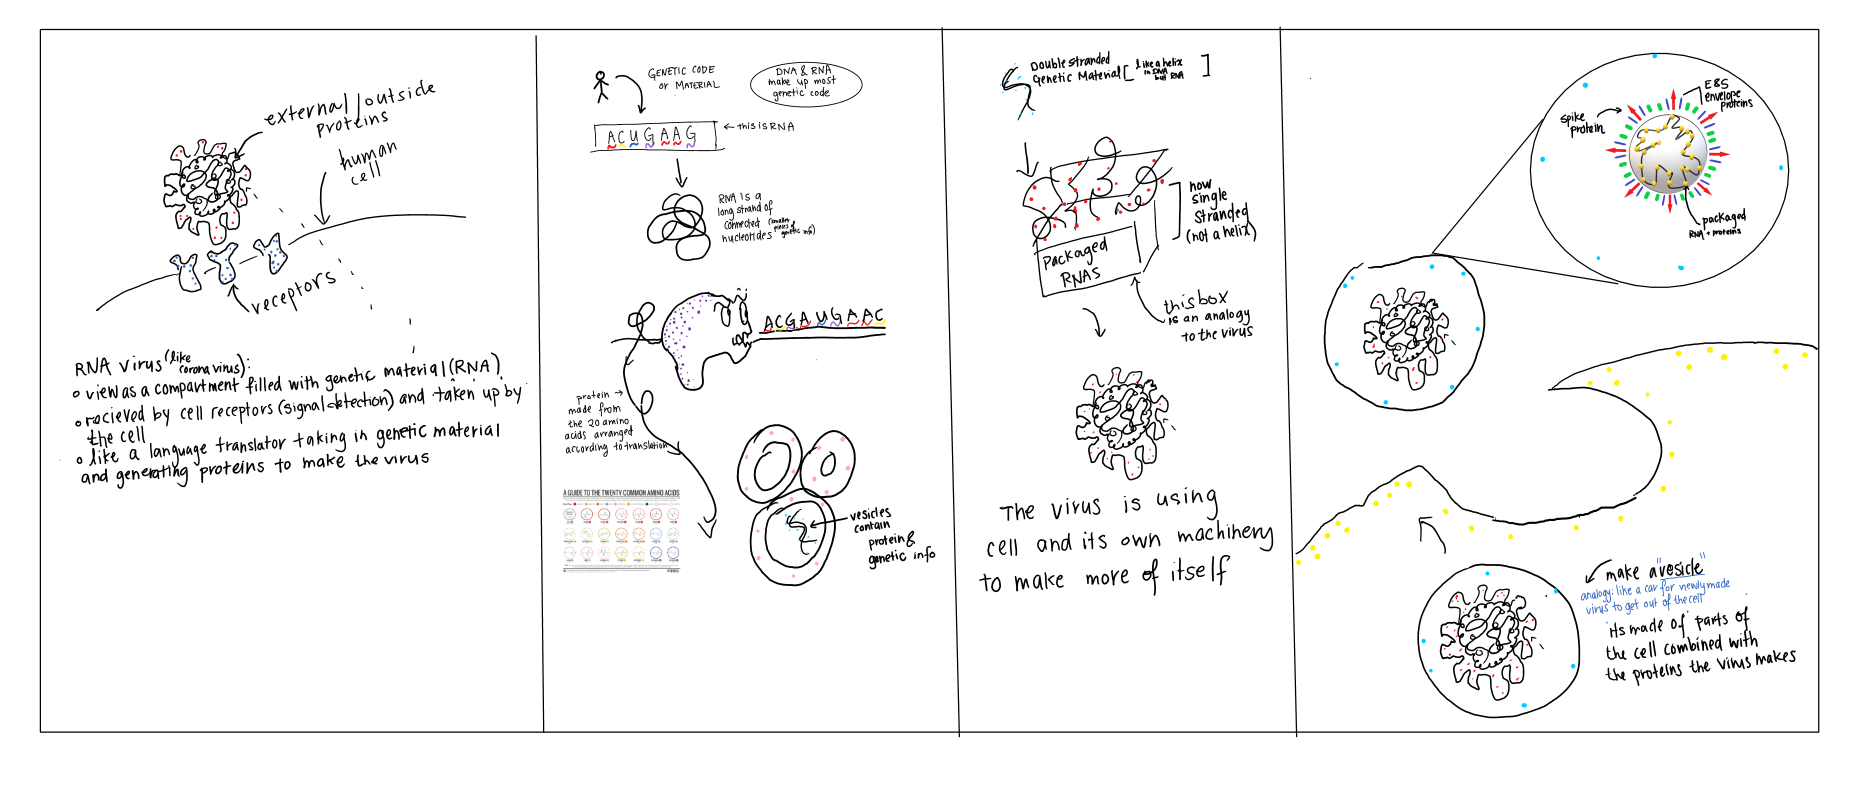 external/outside
proteins
human
cell
receptors
RNA virus (like
corona virus):
view as a compartment filled with genetic material (RNA)
recieved by cell receptors (signal detection) and taken up by
the cell
like a language translator taking in genetic material
and generating proteins to make the virus
GENETIC CODE
or MATERIAL
DNA & RNA
make up most
genetic code
ACUGAAG
this is RNA
RNA is a
long strand of
connected (smaller
pieces of
nucleotides genetic info)
ACGAUGAAC
protein
made from
the 20 amino
acids arranged
according to translation
A GUIDE TO THE TWENTY COMMON AMINO ACIDS
vesicles
contain
protein &
genetic info
Double stranded
Genetic Material [like a helix
in DNA
but RNA]
now
single
stranded
(not a helix)
Packaged
RNAS
this box
is an analogy
to the virus
The virus is using
cell and its own machinery
to make more of itself
spike
protein
E&S
envelope
proteins
packaged
RNA + proteins
make a "vesicle"
analogy: like a car for newly made
virus to get out of the cell
its made of parts of
the cell combined with
the proteins the virus makes